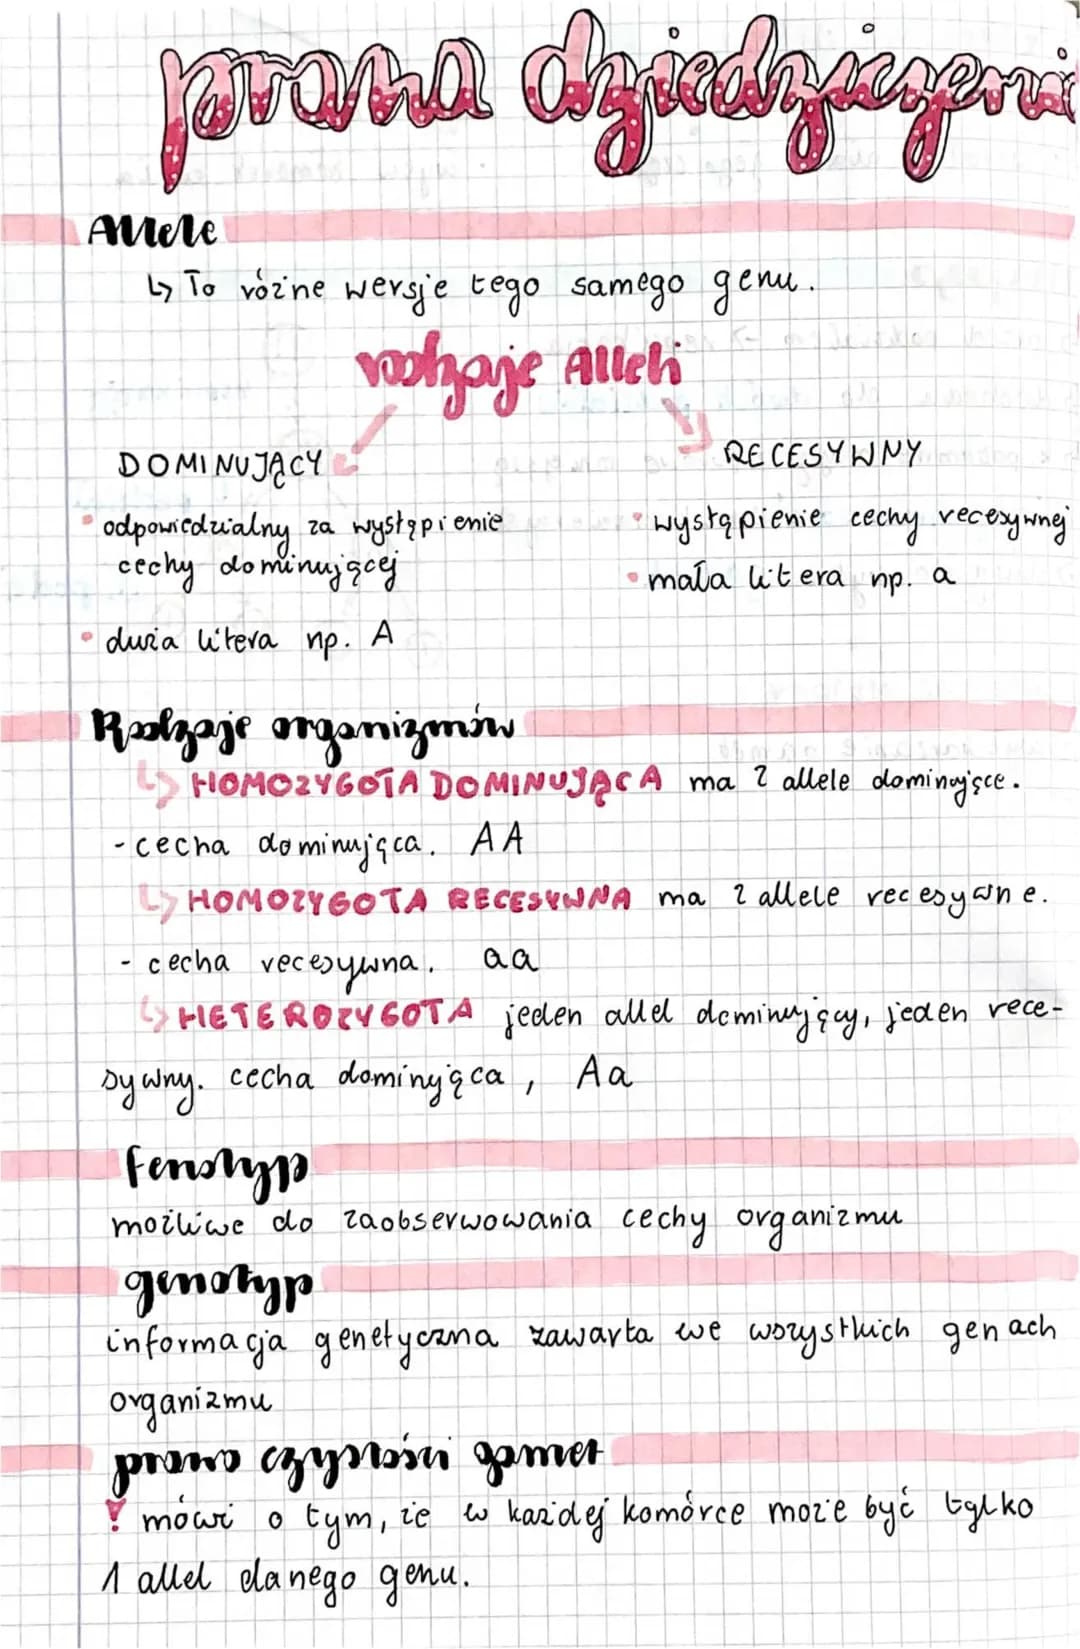 prawa dziedziczenia
Allele
↳ To różne wersje tego samego genu.
rodzaje Alleli
DOMINUJĄCY
• odpowiedzialny za wystąpienie
cechy dominującej
• duża litera np. A
RECESYWNY
• wystąpienie cechy recesywnej
• mała litera np. a
Rodzaje organizmów
↳ HOMOZYGOTA DOMINUJĄCA ma 2 allele dominujące.
- cecha dominująca. AA
↳ HOMOZYGOTA RECESYWNA ma 2 allele recesywne.
- cecha recesywna. aa
↳ HETEROZYGOTA jeden allel dominujący, jeden rece-
sywny. cecha dominująca, Aa
fenotyp
możliwe do zaobserwowania cechy organizmu
genotyp
informacja genetyczna zawarta we wszystkich genach
organizmu
prawo czystości gamet
! mówi o tym, że w każdej komórce może być tylko
1 allel danego genu.